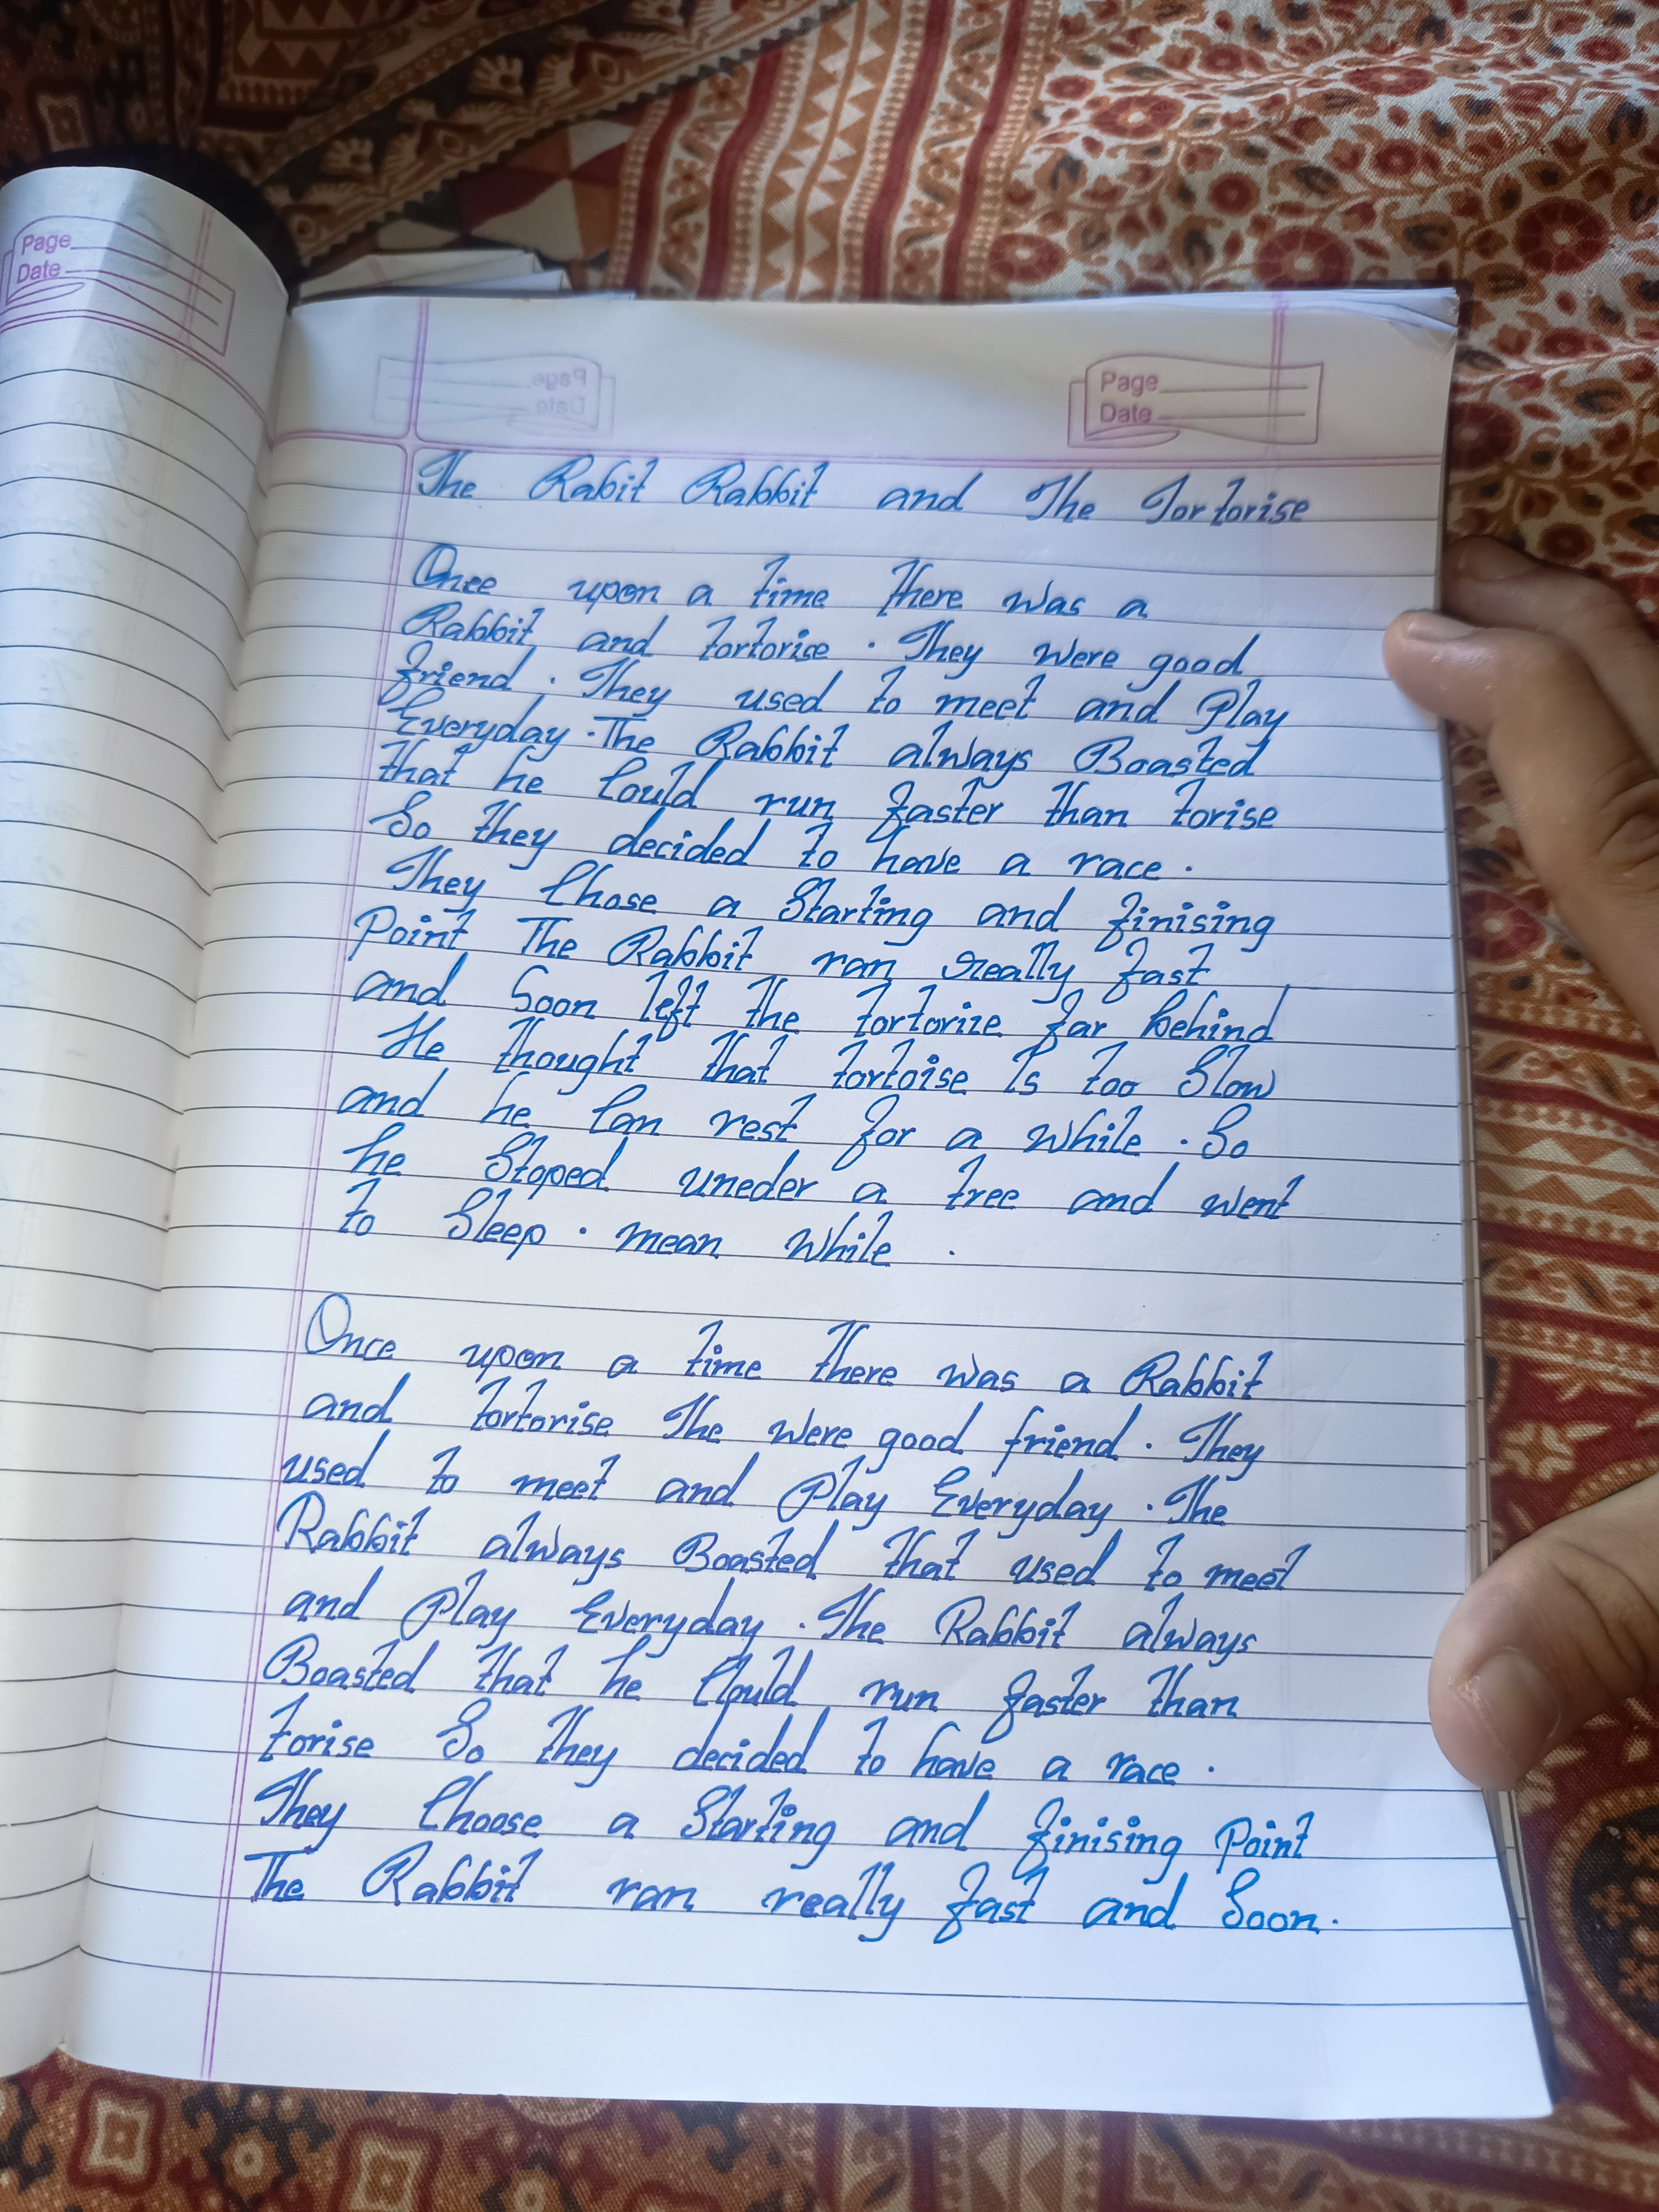 Page
Date
Page
Date
The Rabit Rabbit and The Tortorise
Once upon a time there was a
Rabbit and tortorise . They were good
friend . They used to meet and Play
Everyday . The Rabbit always Boasted
that he Could run faster than torise
So they decided to have a race .
They Chose a Starting and finising
Point The Rabbit ran really fast
and Soon left the tortorize far behind
He thought that tortoise Is too Slow
and he Can rest for a while . So
he Stoped uneder a tree and went
to Sleep . mean while .
Once upon a time there was a Rabbit
and tortorise The were good friend . They
used to meet and Play Everyday . The
Rabbit always Boasted that used to meet
and Play Everyday . The Rabbit always
Boasted that he Could run faster than
torise So they decided to have a race .
They Choose a Starting and finising Point
The Rabbit ran really fast and Soon .